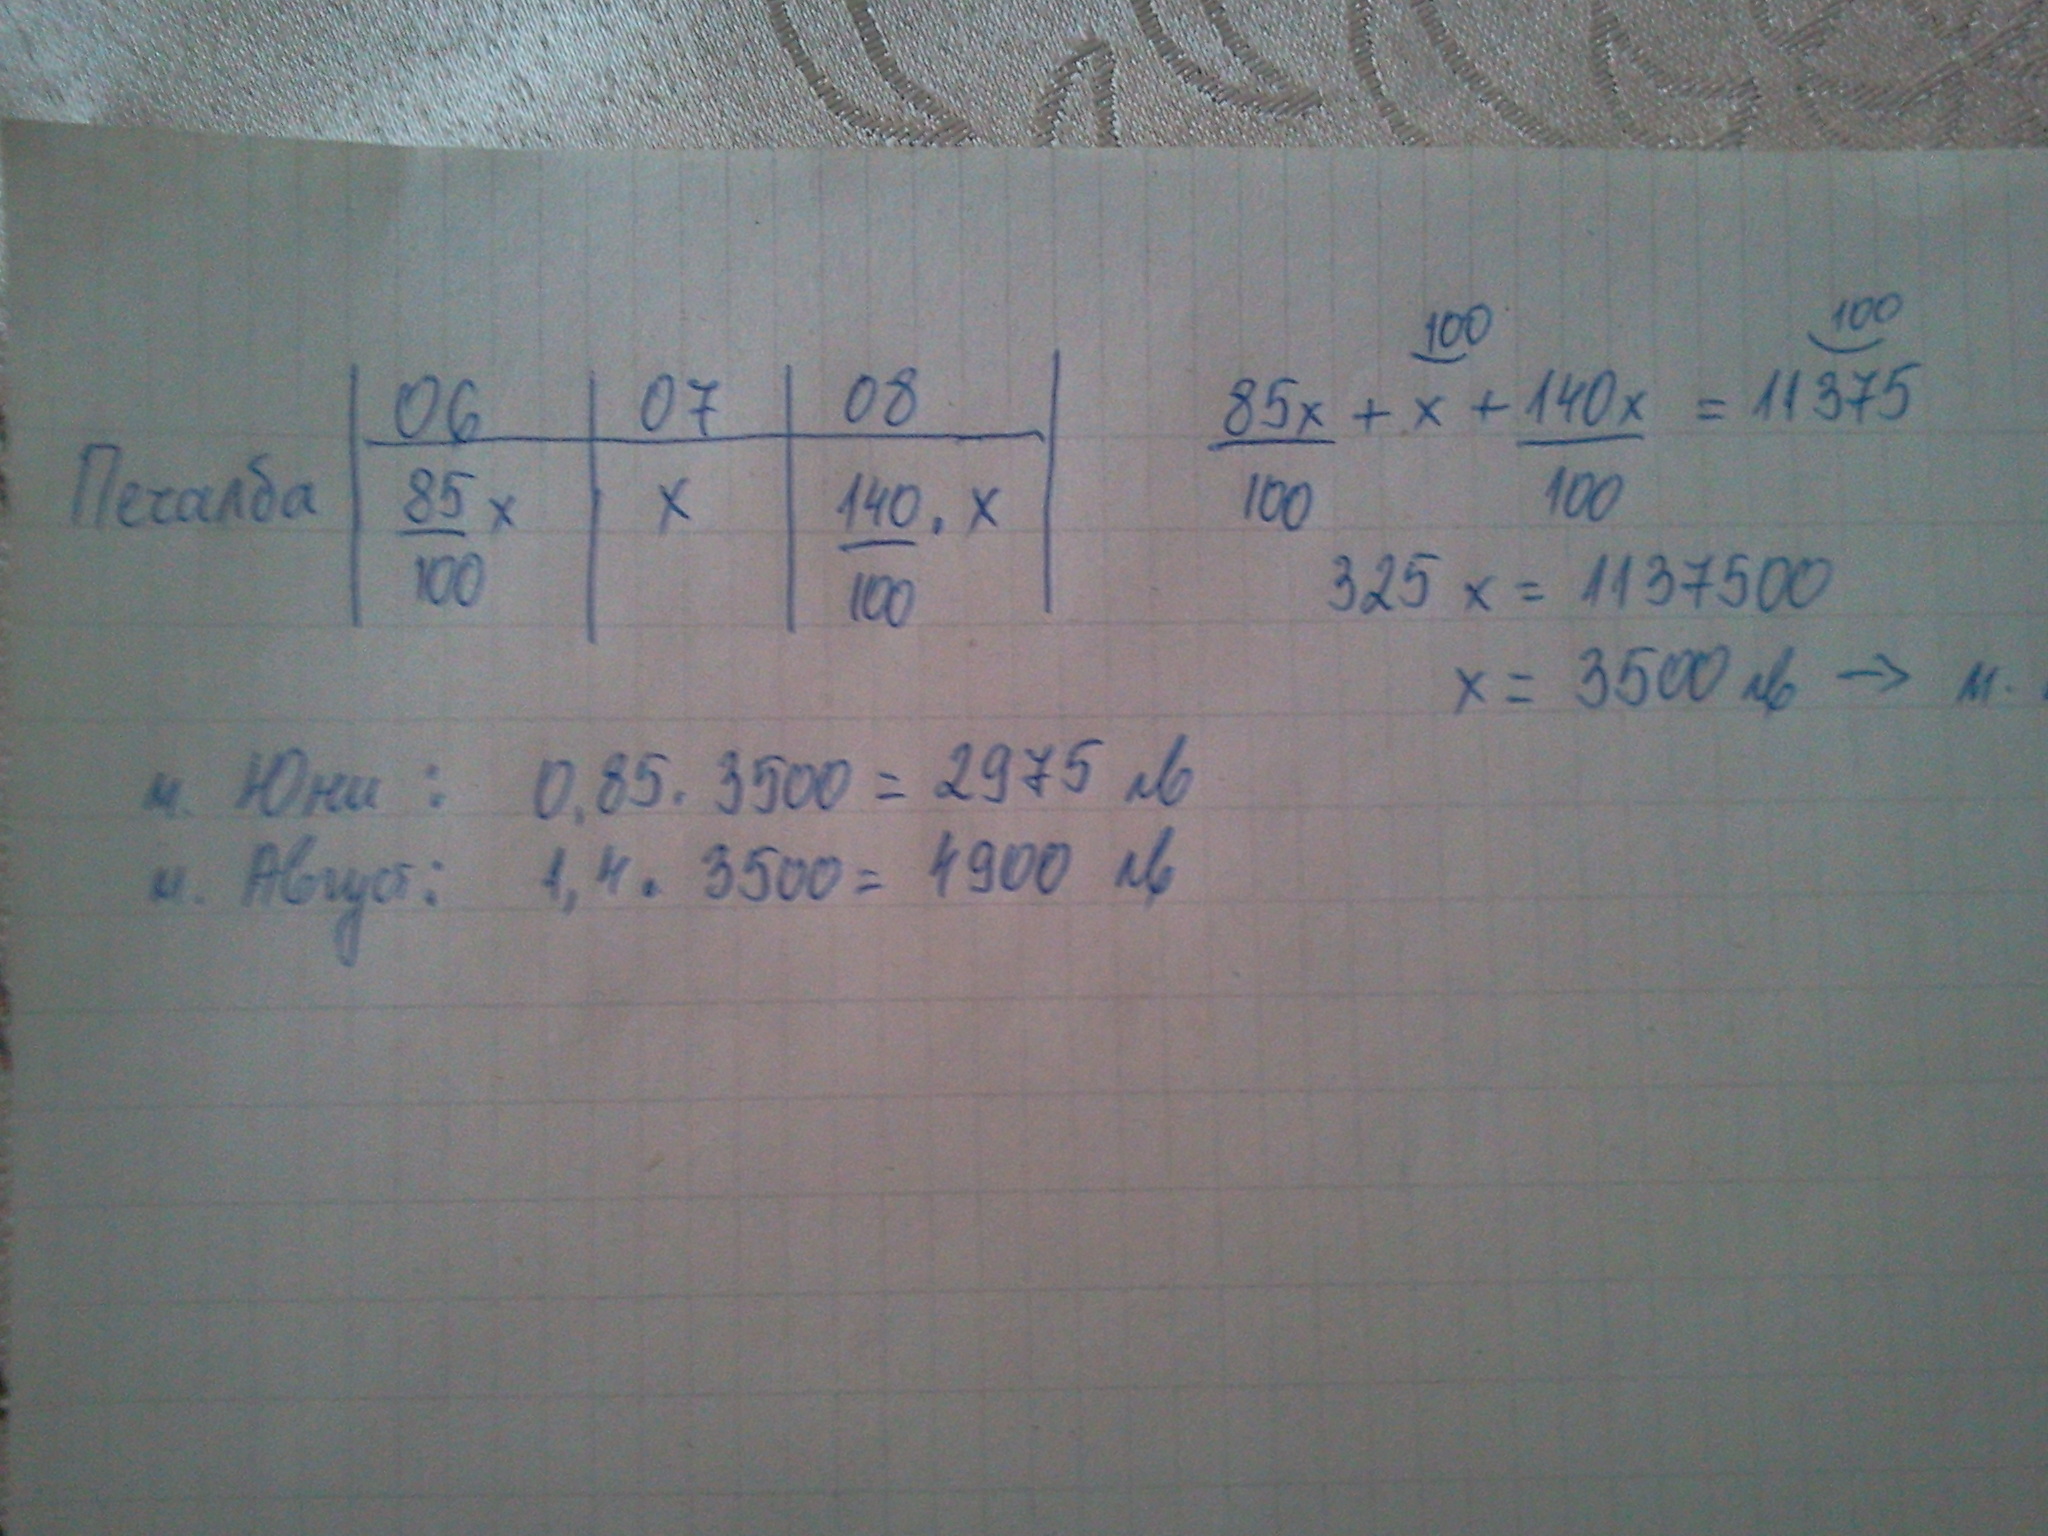 06 07 08
Печалба 85/100 x x 140/100 . x
100 100
85x/100 + x + 140x/100 = 11375
325 x = 1137500
x = 3500 лв → м.
м. Юни : 0,85. 3500 = 2975 лв
м. Август: 1,4. 3500 = 4900 лв